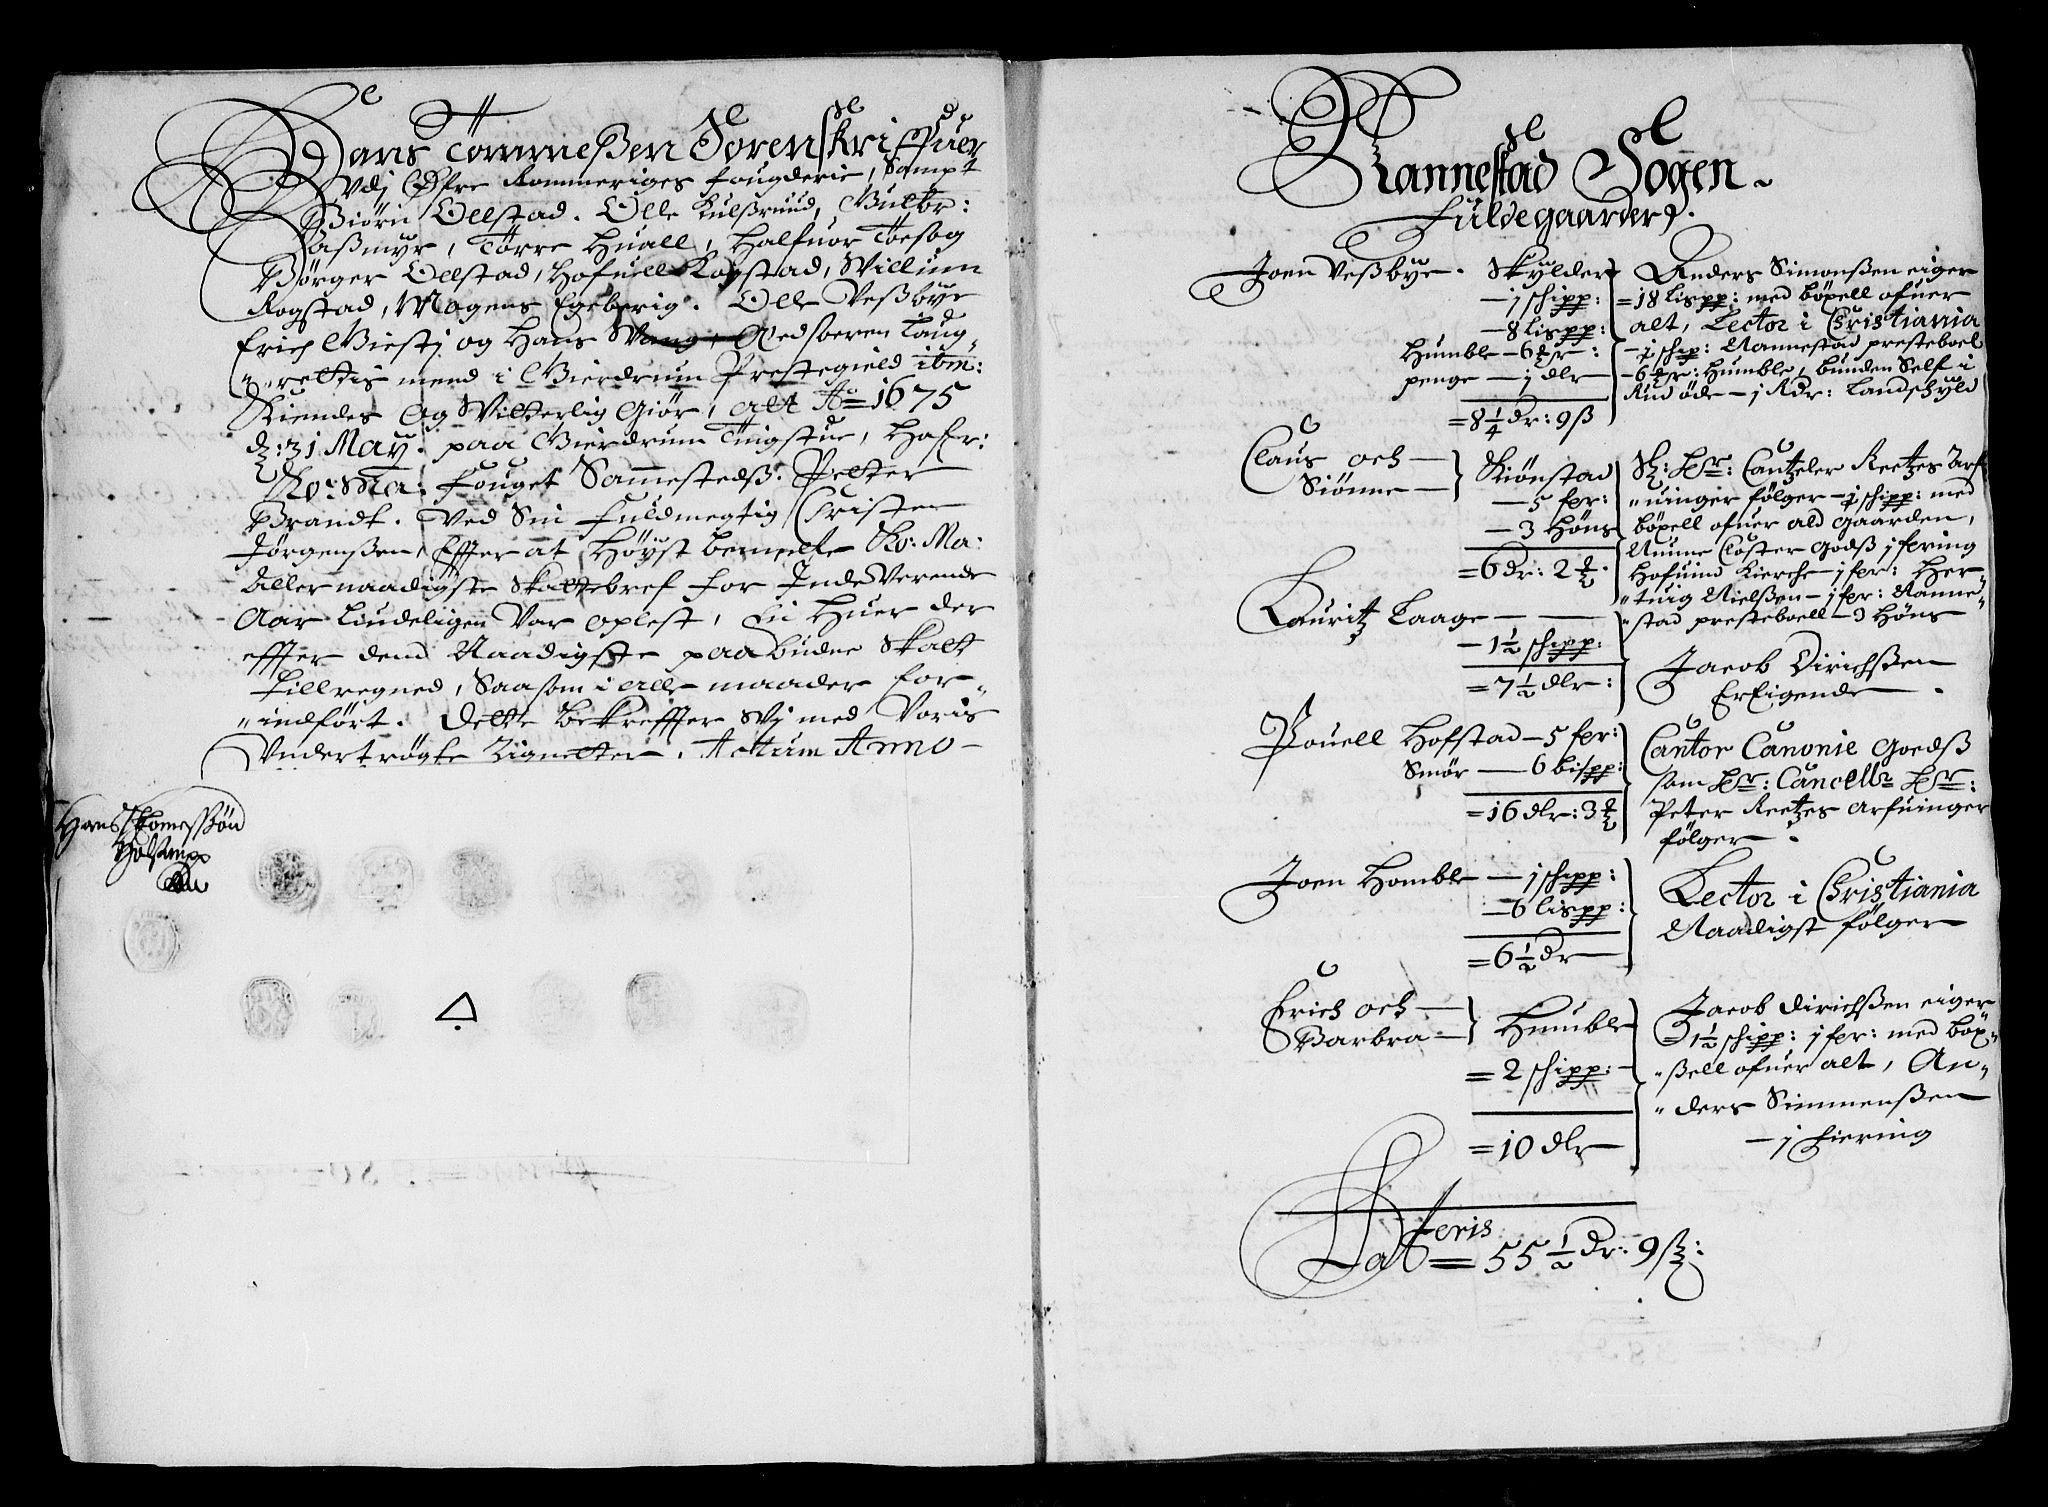 Hans Tommeßen Sorenskriffuer
Udj Øfre Rommeriges fougderie, Sampt
Biørn Ollstad. Olle Kulßruud, Gulbr:
Haßmyr, Tørre Huall, Halfuor Toesog
Børger Ollstad, Hofuell Rogstad, Willum
Rogstad, Mogens Egeberig. Olle Veßbye
Erich Giestj og Hans Wang, Aedsoeren Laug-
"rettis mend i Gierdrum Prestegield ibm:
Kiendes og Witterlig Giør, att Ao= 1675
dz: 31 May. paa Gierdrum Tingstue, hafr:
Ko: Ma: fouget Sammestedß. Petter
Brandt. Ved Sin fuldmegtig Christen
Jørgenßen, effter at Høyst bemelte Ko: Ma:
Aller naadigste Skattebref for Inde Verende
Aar liudeligen Var oplest, En Huer der
effter dend Naadigste paabudne Skatt
tillregned, Saasom i alle maader for-
"indført. Dette bekreffter Wj med Voris
Undertrøgte Zignetter, Actum Anno -
Hans Thomessøn
Holstrup

Nannestad Sogen.
fulde gaarder.
Joen Veßbye. Skylder
- 1 schipp:
- 8 lispp:
Humble - 6
penge - 1 dlr
= 8 1/4 dr: 9 ß
Anders Simonßen eiger
= 18 lispp: med böxell ofuer
alt, Lector i Christiania
- 1 schip: Nannestad presteboel
- 6 : Humble, bunden Self i
Rud øde - 1 Rdr: Landschyld
Claus och
Siönne
Skiønstad
- 5 fpr:
- 3 Høns
= 6 dr: 2
S: Hr: Cantzeler Reetzes Arf-
"uinger følger - 1 schipp: med
böxell ofuer ald gaarden,
Nunne Closter Godß 1 fering
Hofuind Kierche - 1 fpr: Her-
"tuig Nielßen - 1 fpr: Nanne-
"stad presteboell - 3 Høns
Lauritz Laage
- 1 1/2 schipp:
= 7 1/2 dlr:
Jacob Dirichßen
Er Eigende
Pouell Hofstad - 5 fpr:
Smør - 6 bispp:
= 16 dlr: 3
Cantor Canonie Goedß
som Hr: Cancell Hr:
Peter Reetzes Arfuinger
følger
Joen Homble - 1 schipp:
- 6 lispp:
= 6 1/2 dr
Lector i Christiania
Naadigst følger
Erich och
Barbra
Humble
= 2 schipp:
= 10 dlr
Jacob Dirichßen eiger
= 1 1/2 schipp: 1 fpr: med böx-
"ßell ofuer alt, An-
"ders Simmenßen
- 1 fiering
Lateris
= 55 1/2 dr: 9 ß: